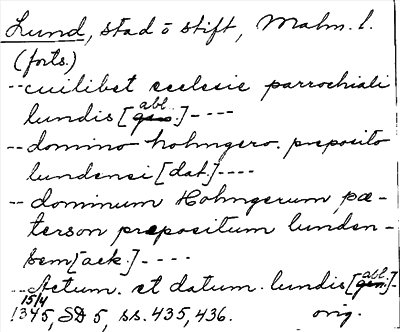 Lund, stad o stift, Malm. l.
(forts.)
--cuilibet ecclesie parrochiali
lundis [gen. abl.]----
--domino hohngero. preposito
lundensi [dat.]----
-- dominum Hohngerum pæ-
terson prepositum lunden-
sem [ack.]----
--Actum. et datum. lundis [gen. abl.]-
15/4 1345, SD 5, ss. 435, 436. orig.